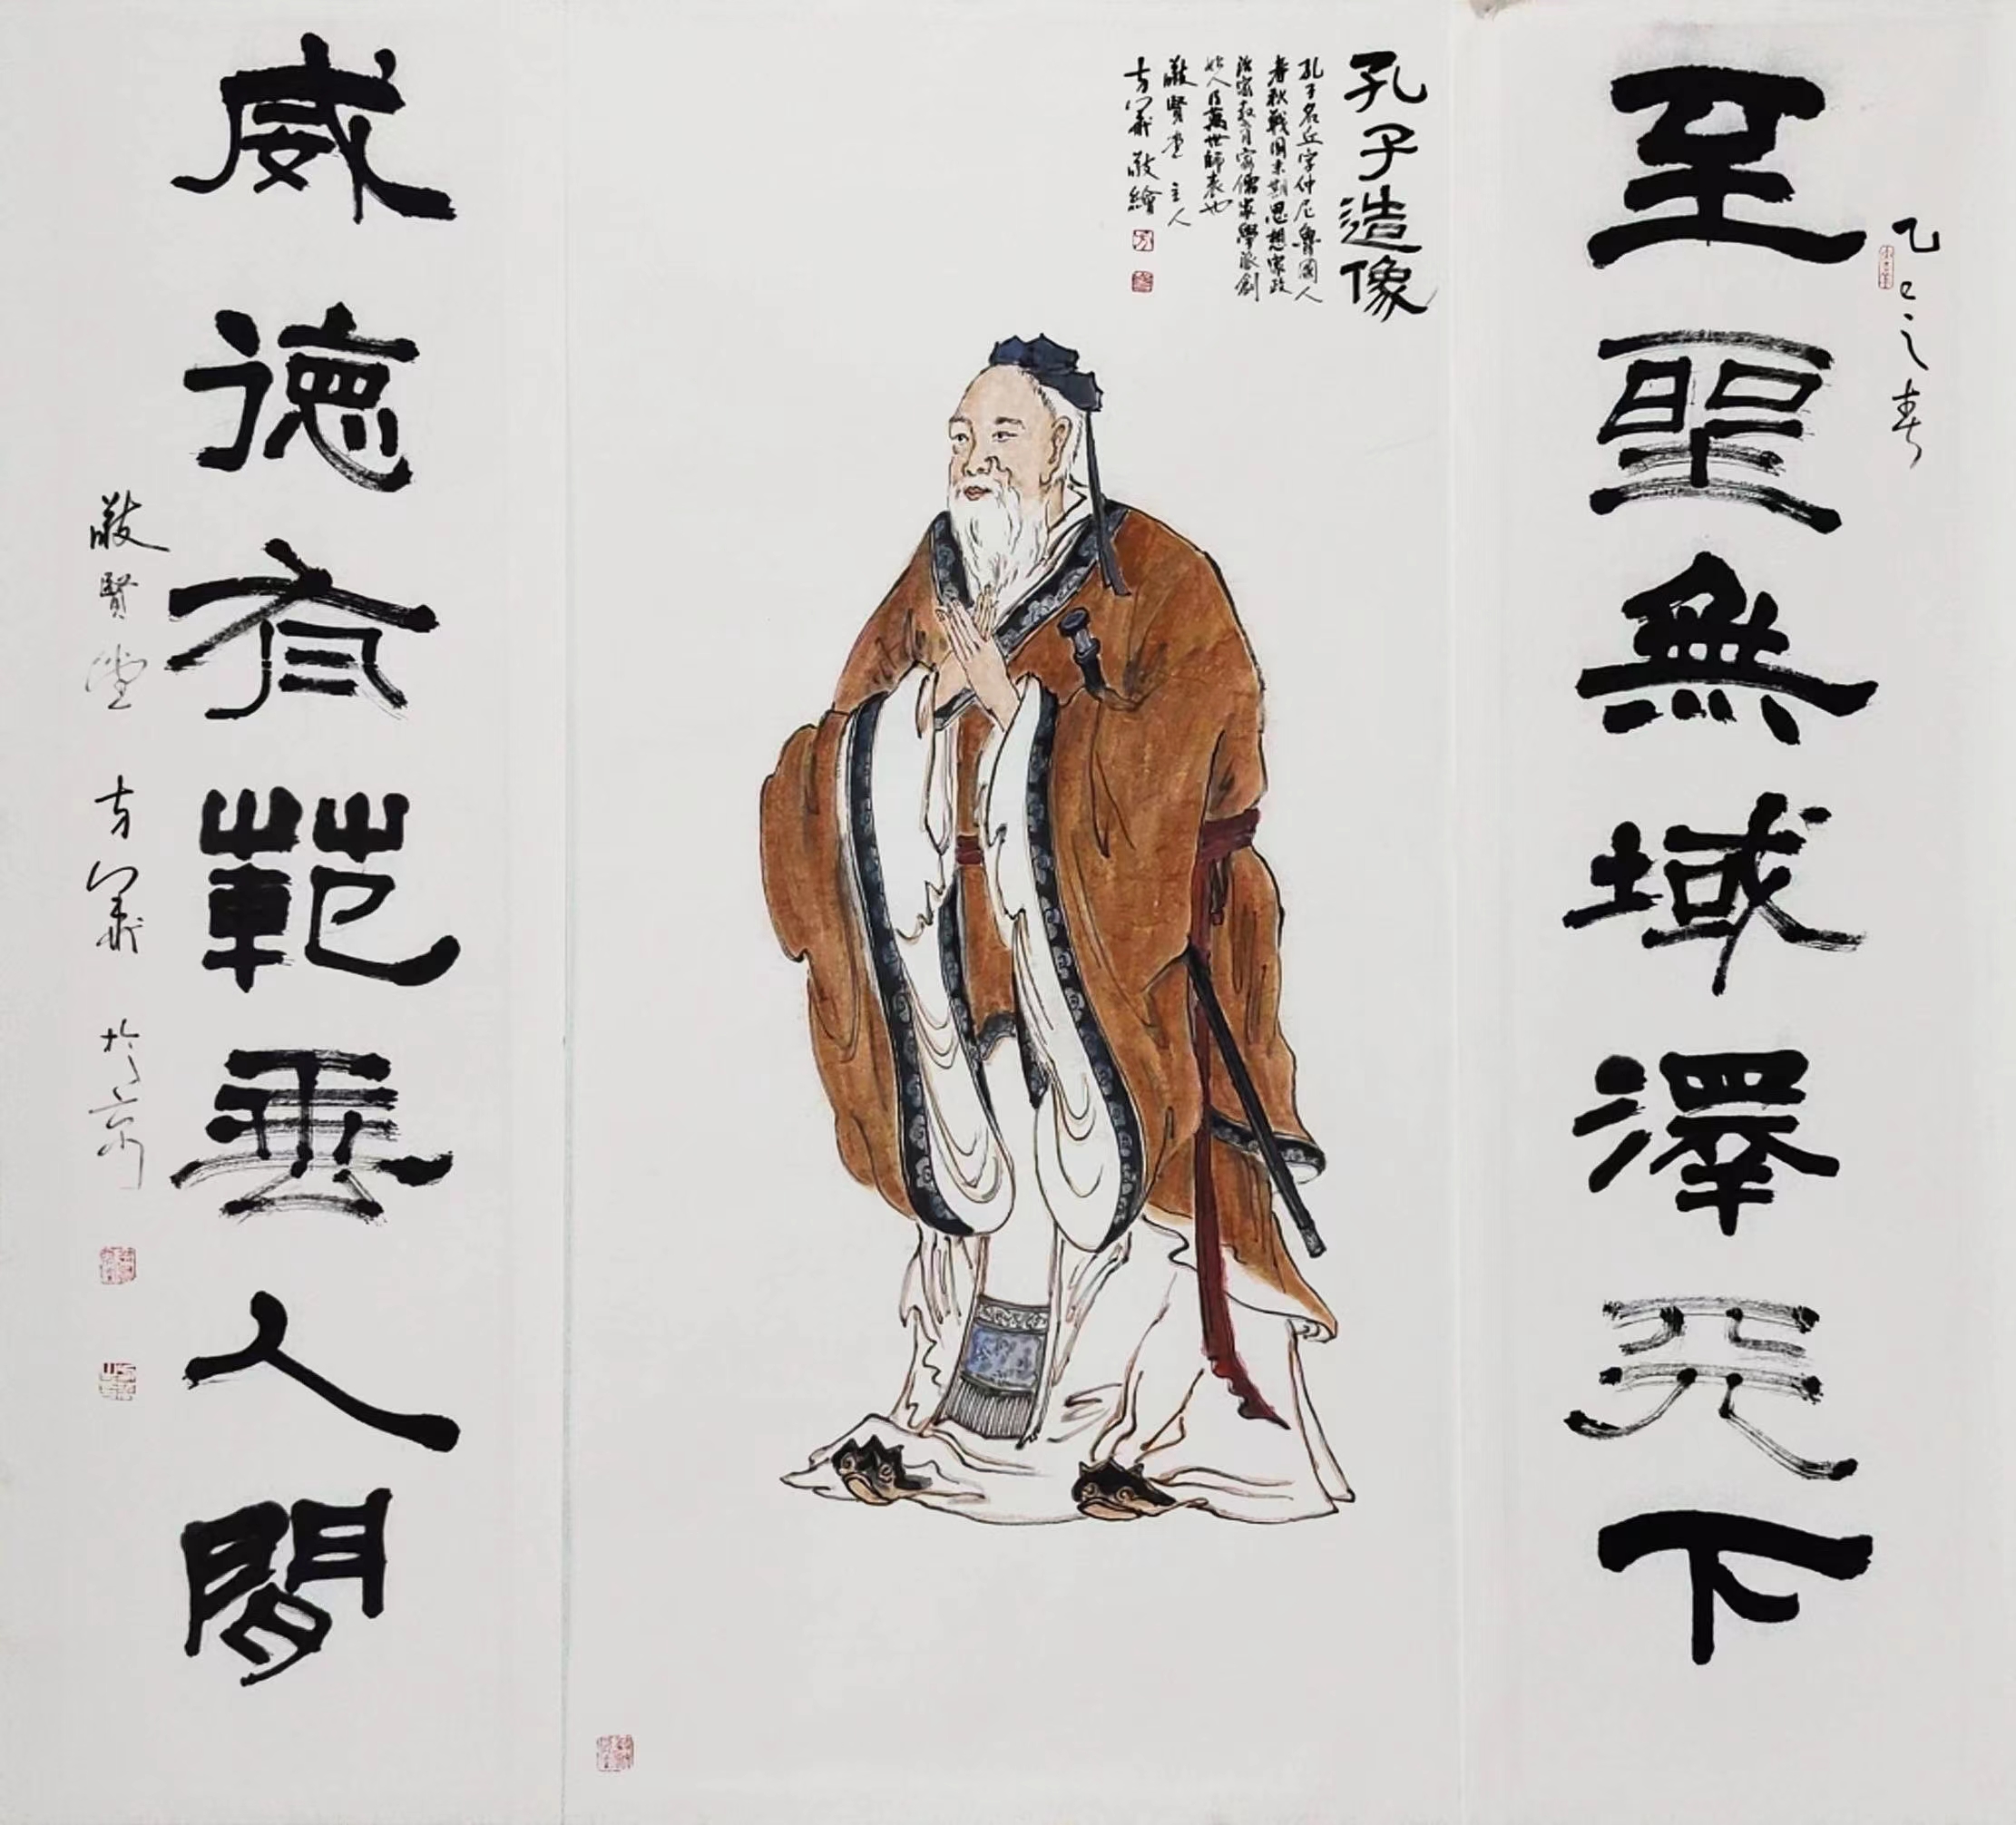 乙巳之春
至聖無域澤天下
孔子造像
孔子名丘字仲尼魯國人
春秋戰國末期思想家政
治家教育家儒家學派創
始人乃萬世師表也
敬賢堂主人
方 敬繪
威德有範垂人間
敬賢堂 方 於京